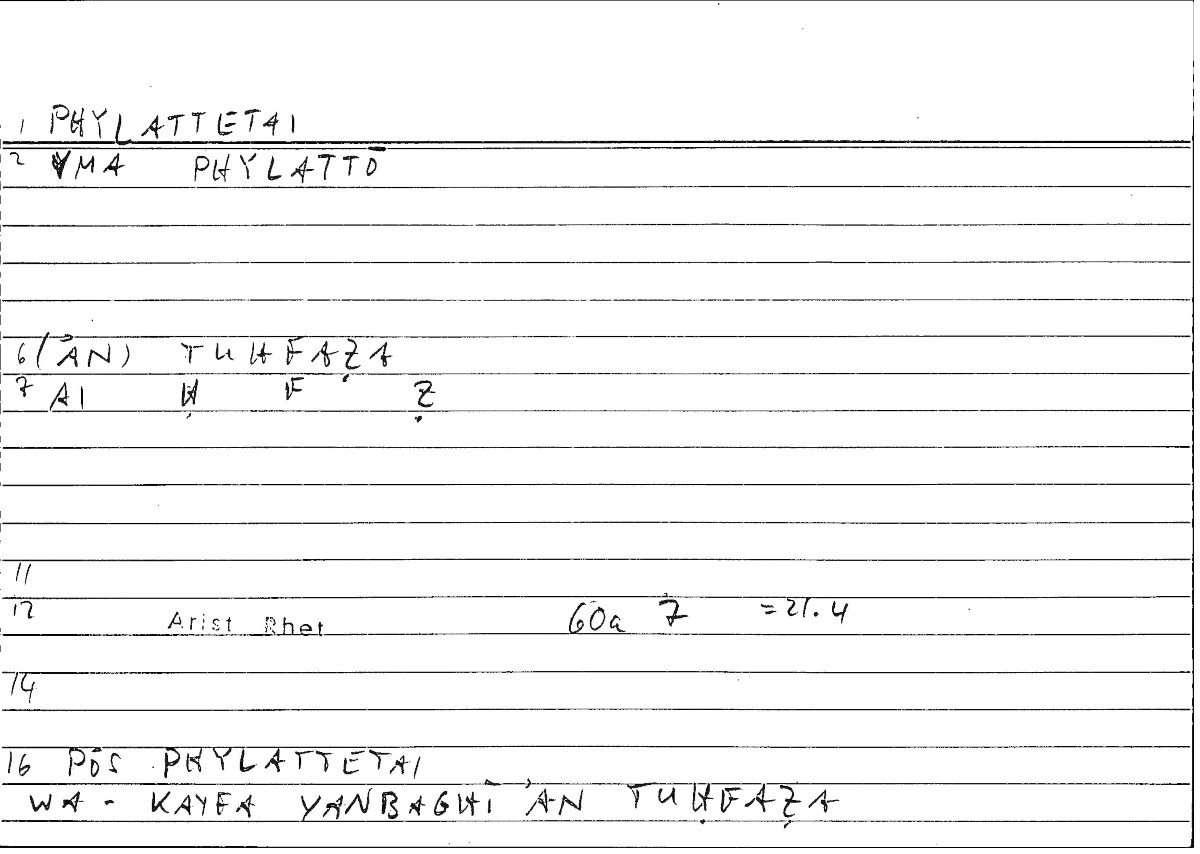 1 PHYLATTETAI
2 VMA PHYLATTŌ
6 (ʾAN) TUHFAẒA
7 AI Ḥ F Ẓ
11
12 Arist Rhet 60a 7 =21.4
14
16 PŌS PHYLATTETAI
WA - KAYFA YANBAGHĪ ʾAN TUḤFAẒA